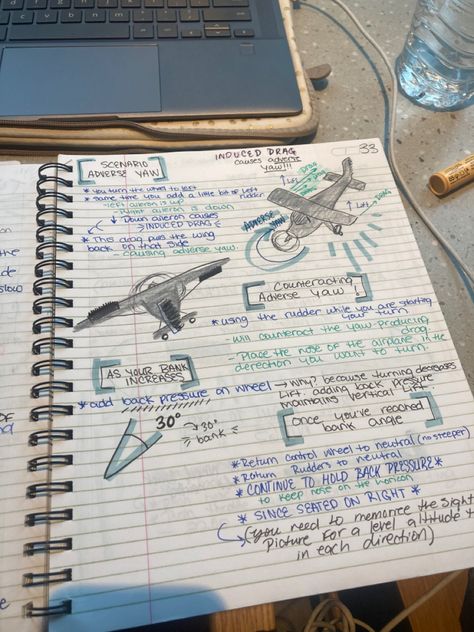 SCENARIO
ADVERSE YAW
INDUCED DRAG
causes adverse
yaw!!!
33
* you turn the wheel to left
* same time you add a little bit of left
rudder
- left aileron is up
- Right aileron is down
↳ Down aileron causes
⇒ INDUCED DRAG ⇐
* This drag pulls the wing
back on that side
- causing adverse yaw.
Lift
Drag
ADVERSE
YAW
Lift
Counteracting
Adverse Yaw!
* using the rudder while you are starting
your turn.
- will counteract the yaw-producing
drag.
- Place the nose of the airplane in the
derection you want to turn.
AS YOUR BANK
INCREASES
* add back pressure on wheel → Why? because turning decreases
Lift. adding back pressure
maintains vertical
30°
→ 30°
bank
Once you've reached
bank angle
* Return control wheel to neutral (no steeper)
* Return Rudders to neutral
* CONTINUE TO HOLD BACK PRESSURE *
to keep nose on the horizon
* SINCE SEATED ON RIGHT *
↳ (you need to memorize the sight
Picture for a level altitude +
in each direction)